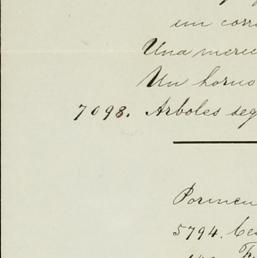 em corr
Una merce
Un horno
7098. Arboles seg
Pormen
5794. Ce